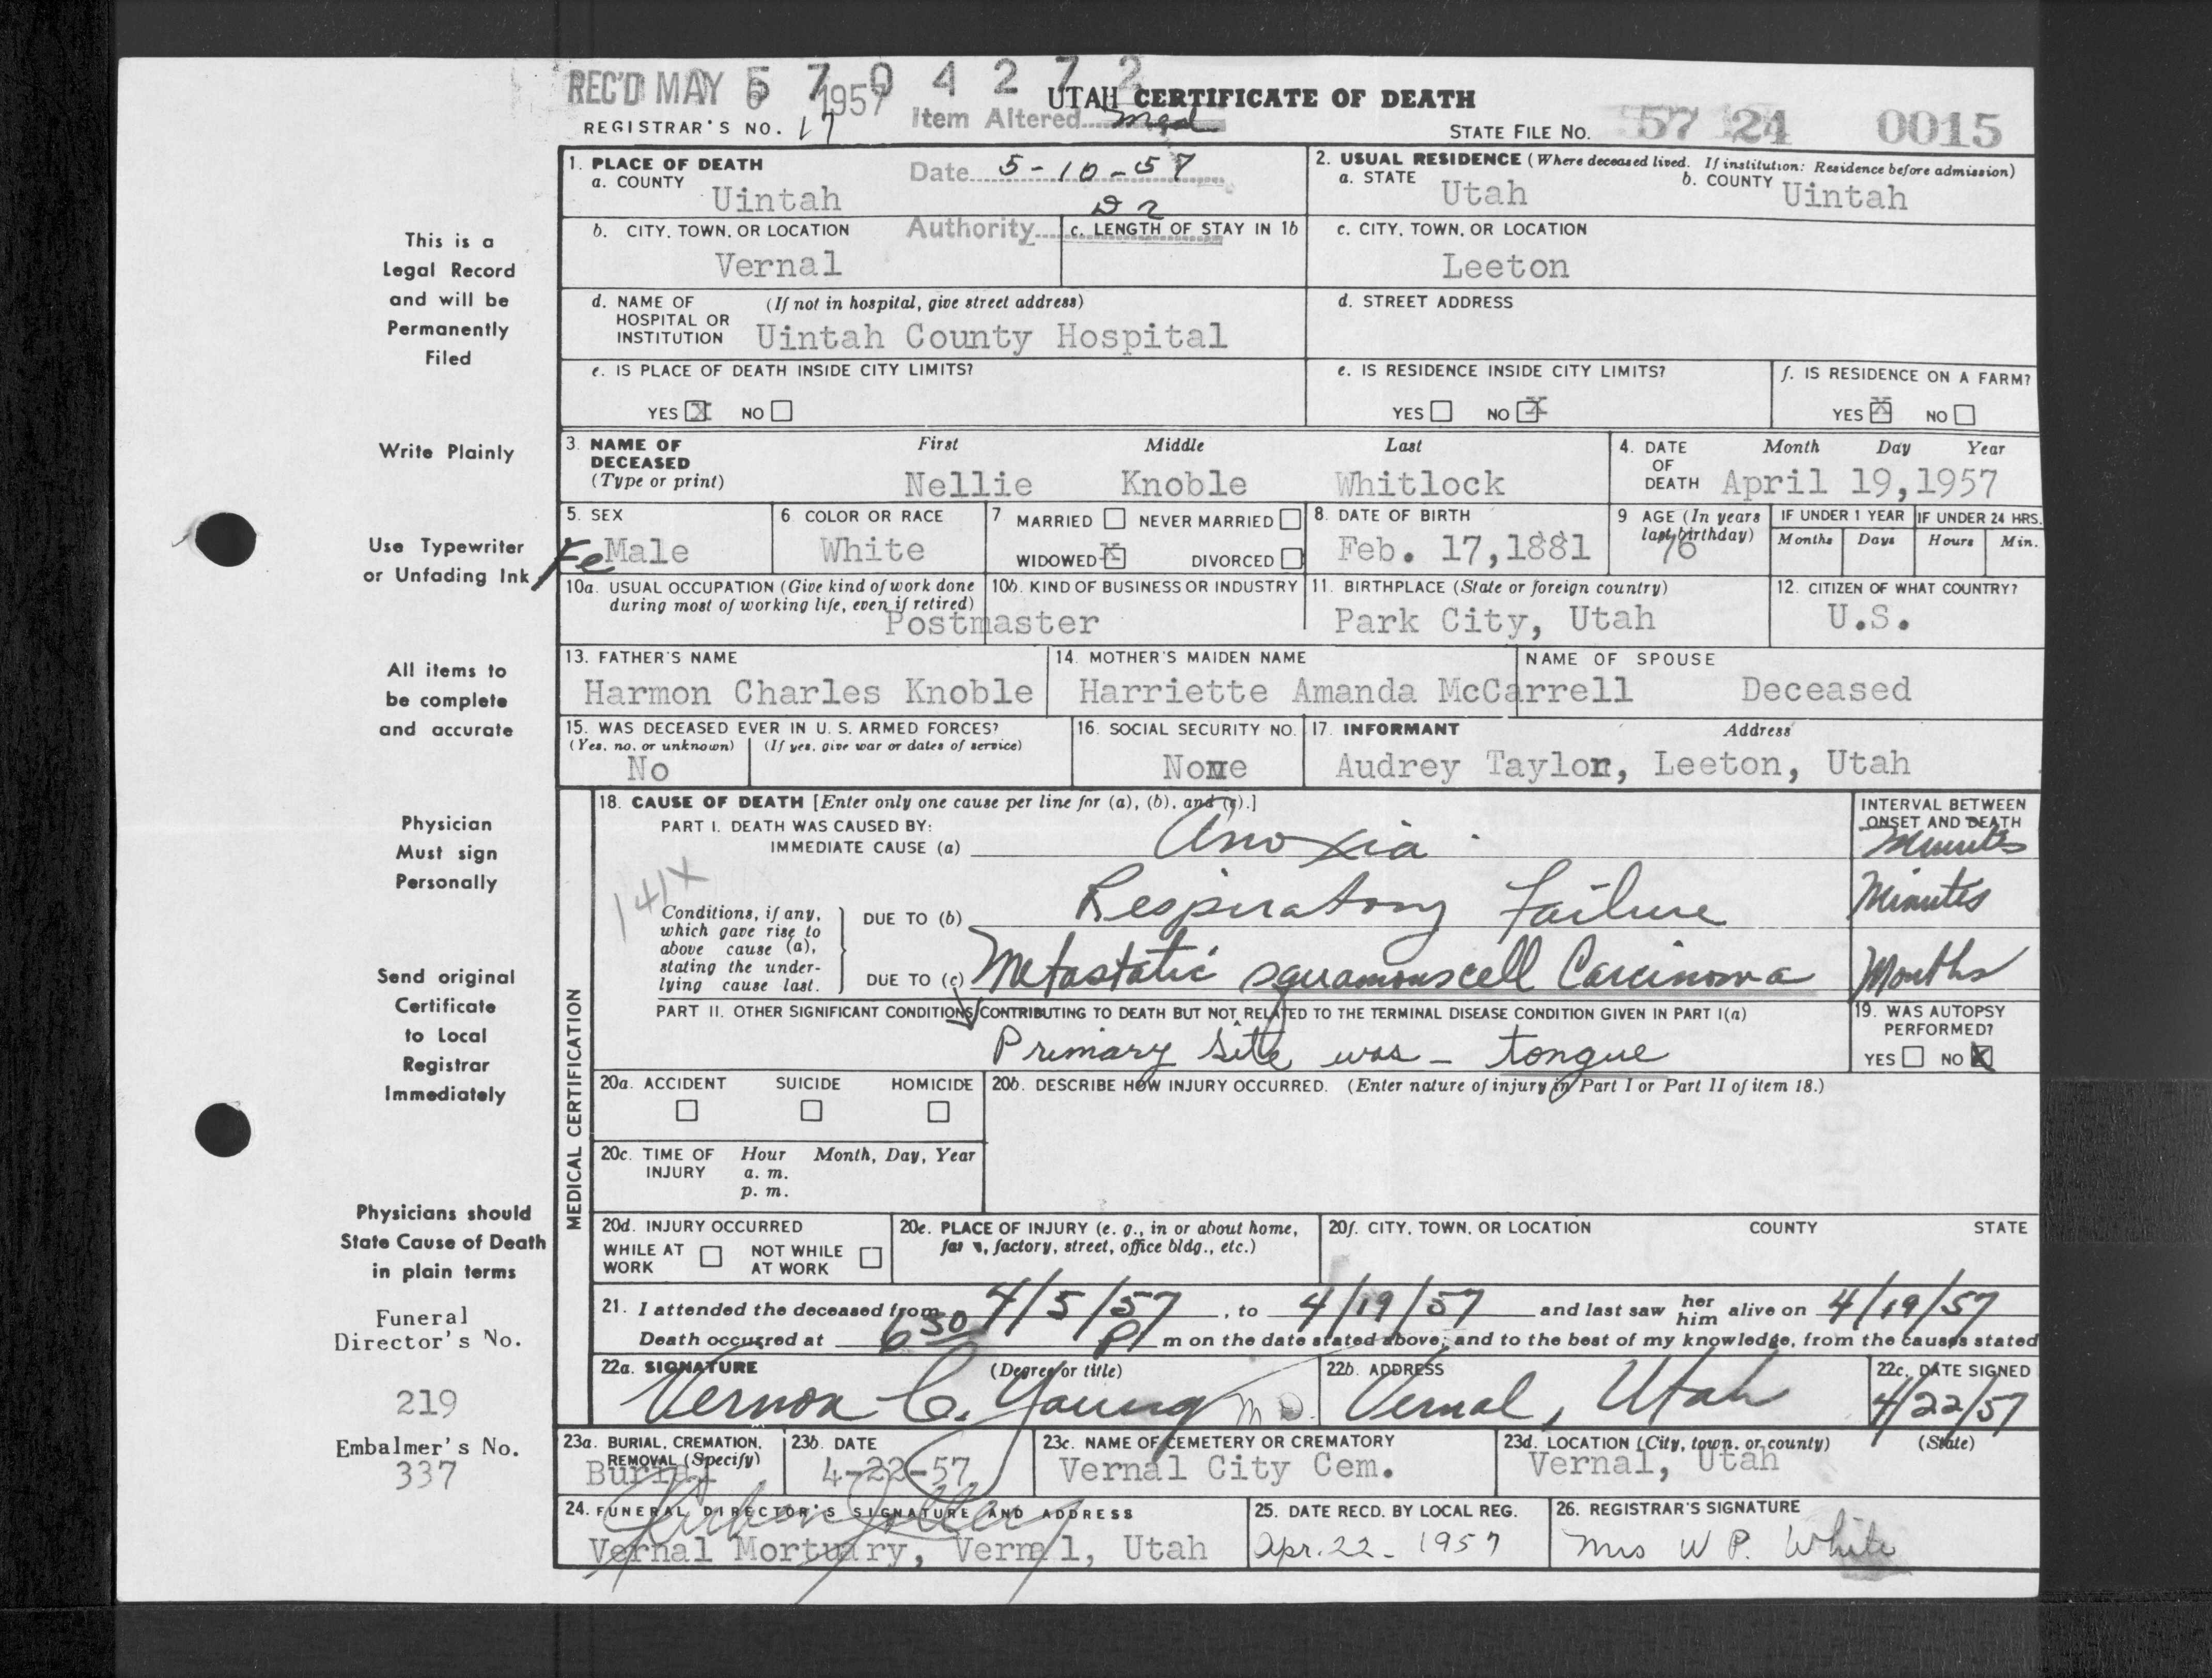 REC'D MAY 6 1957
5 7 0 4 2 7 2
UTAH CERTIFICATE OF DEATH
REGISTRAR'S NO. 17
Item Altered
STATE FILE No. 57 24 0015
Date 5-10-57
Authority Dr
1. PLACE OF DEATH
a. COUNTY Uintah
2. USUAL RESIDENCE (Where deceased lived. If institution: Residence before admission)
a. STATE Utah b. COUNTY Uintah
b. CITY, TOWN, OR LOCATION Vernal
c. LENGTH OF STAY IN 1b
c. CITY, TOWN, OR LOCATION
Leeton
d. NAME OF HOSPITAL OR INSTITUTION (If not in hospital, give street address)
Uintah County Hospital
d. STREET ADDRESS
e. IS PLACE OF DEATH INSIDE CITY LIMITS?
YES X NO
e. IS RESIDENCE INSIDE CITY LIMITS?
YES NO X
f. IS RESIDENCE ON A FARM?
YES X NO
3. NAME OF DECEASED (Type or print)
First Middle Last
Nellie Knoble Whitlock
4. DATE OF DEATH Month Day Year
April 19,1957
5. SEX
FeMale
6 COLOR OR RACE
White
7 MARRIED NEVER MARRIED
WIDOWED X DIVORCED
8. DATE OF BIRTH
Feb. 17,1881
9 AGE (In years last birthday)
76
IF UNDER 1 YEAR IF UNDER 24 HRS.
Months Days Hours Min.
10a. USUAL OCCUPATION (Give kind of work done during most of working life, even if retired)
Postmaster
10b. KIND OF BUSINESS OR INDUSTRY
11. BIRTHPLACE (State or foreign country)
Park City, Utah
12. CITIZEN OF WHAT COUNTRY?
U.S.
13. FATHER'S NAME
Harmon Charles Knoble
14. MOTHER'S MAIDEN NAME
Harriette Amanda McCarrell
NAME OF SPOUSE
Deceased
15. WAS DECEASED EVER IN U. S. ARMED FORCES?
(Yes, no, or unknown) (If yes, give war or dates of service)
No
16. SOCIAL SECURITY NO.
None
17. INFORMANT Address
Audrey Taylor, Leeton, Utah
MEDICAL CERTIFICATION
18. CAUSE OF DEATH [Enter only one cause per line for (a), (b), and (c).]
INTERVAL BETWEEN ONSET AND DEATH
PART I. DEATH WAS CAUSED BY:
IMMEDIATE CAUSE (a) Anoxia Minutes
141X
Conditions, if any, which gave rise to above cause (a), stating the underlying cause last.
DUE TO (b) Respiratory Failure Minutes
DUE TO (c) Metastatic squamous cell Carcinoma Months
PART II. OTHER SIGNIFICANT CONDITIONS CONTRIBUTING TO DEATH BUT NOT RELATED TO THE TERMINAL DISEASE CONDITION GIVEN IN PART I(a)
Primary site was - tongue
19. WAS AUTOPSY PERFORMED?
YES NO X
20a. ACCIDENT SUICIDE HOMICIDE
20b. DESCRIBE HOW INJURY OCCURRED. (Enter nature of injury in Part I or Part II of item 18.)
20c. TIME OF INJURY Hour Month, Day, Year
a. m.
p. m.
20d. INJURY OCCURRED
WHILE AT WORK NOT WHILE AT WORK
20e. PLACE OF INJURY (e. g., in or about home, farm, factory, street, office bldg., etc.)
20f. CITY, TOWN, OR LOCATION COUNTY STATE
21. I attended the deceased from 4/5/57, to 4/19/57 and last saw her him alive on 4/19/57
Death occurred at 6 30 P m on the date stated above; and to the best of my knowledge, from the causes stated
22a. SIGNATURE (Degree or title)
Vernon C. Young M D.
22b. ADDRESS
Vernal, Utah
22c. DATE SIGNED
4/22/57
23a. BURIAL, CREMATION, REMOVAL (Specify)
Burial
23b. DATE
4-22-57
23c. NAME OF CEMETERY OR CREMATORY
Vernal City Cem.
23d. LOCATION (City, town, or county) (State)
Vernal, Utah
24. FUNERAL DIRECTOR'S SIGNATURE AND ADDRESS
Vernal Mortuary, Vernal, Utah
25. DATE RECD. BY LOCAL REG.
Apr. 22 - 1957
26. REGISTRAR'S SIGNATURE
Mrs W P. White
This is a
Legal Record
and will be
Permanently
Filed
Write Plainly
Use Typewriter
or Unfading Ink
All items to
be complete
and accurate
Physician
Must sign
Personally
Send original
Certificate
to Local
Registrar
Immediately
Physicians should
State Cause of Death
in plain terms
Funeral
Director's No.
219
Embalmer's No.
337